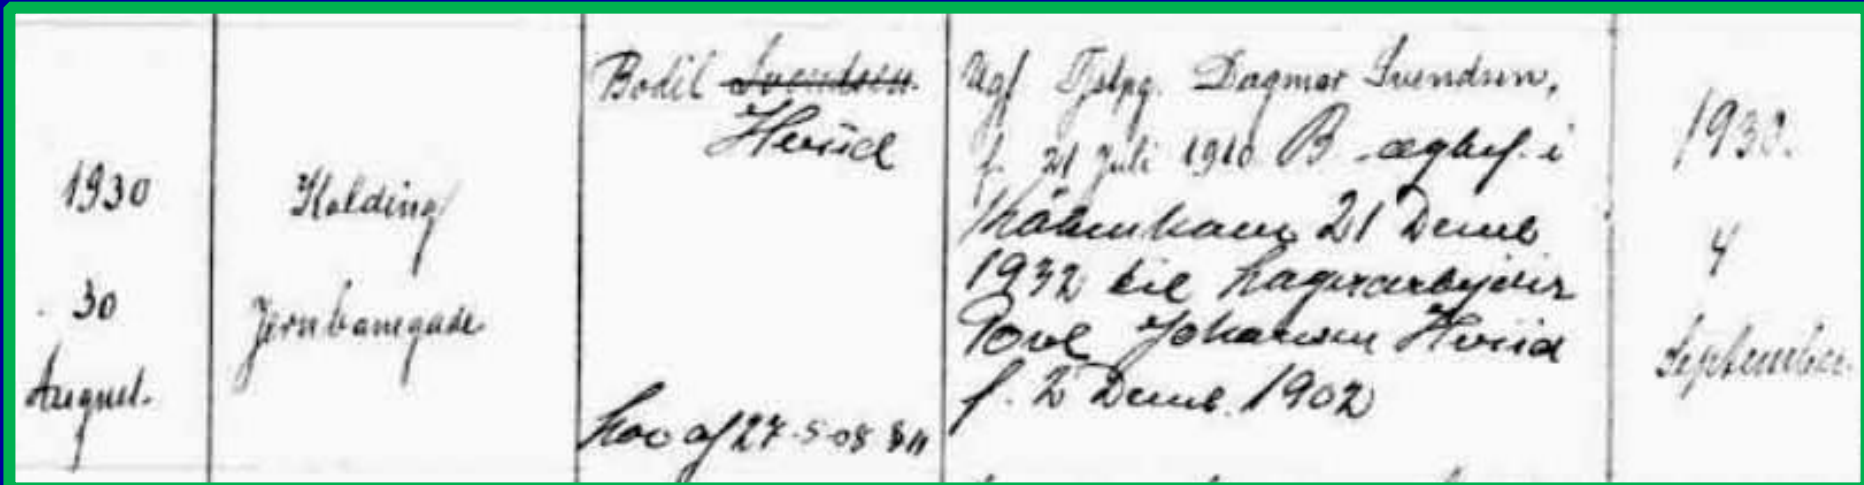 1930
30
August.
Kolding
Jernbanegade
Bodil Svendsen.
Hviid
Lov af 27-5-08 § 11
Ugf Tjstpg. Dagmar Svendsen,
f. 21 Juli 1910 B. ægbef. i
København 21 Decemb
1932 til Lagerarbejder
Povl Johansen Hviid
f. 2 Decemb. 1902
1930.
4
September.